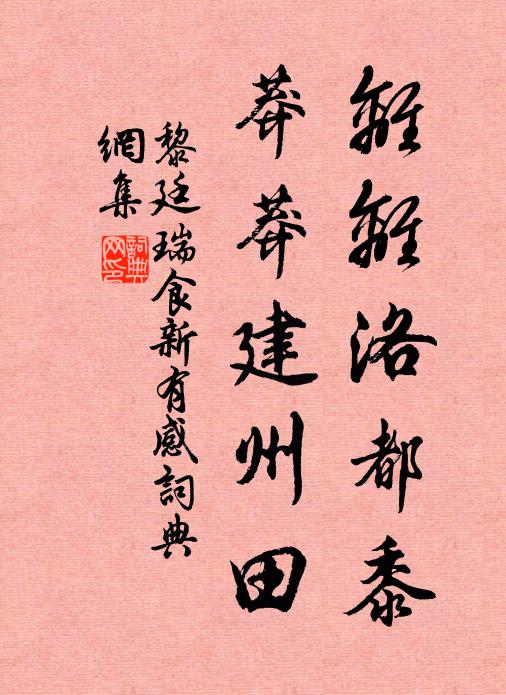 離離洛都黍
莽莽建州田
黎廷瑞食新有感詞典
網集
詞典網印